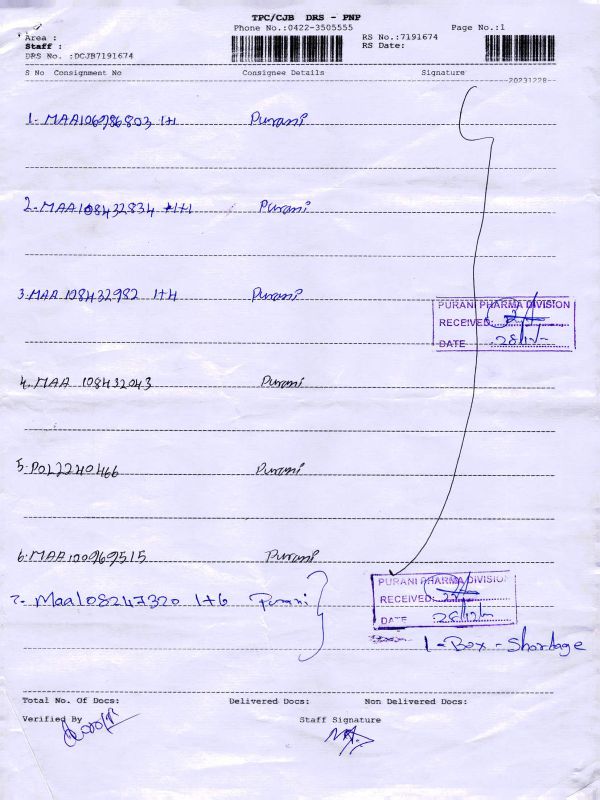 TPC/CJB DRS - PNP
Phone No.:0422-3505555
Page No.:1
Area :
RS No.:7191674
Staff :
RS Date:
DRS No. :DCJB7191674
S No Consignment No Consignee Details Signature
20231228
1. MAA106986803 1+1 Purani
2. MAA108432834 +1+1 Purani
3. MAA 108432982 1+4 Purani
PURANI PHARMA DIVISION
RECEIVED:
DATE 28/12/-
4. MAA 108432043 Purani
5. POL2240466 Purani
6. MAA100969515 Purani
7. Maa108247320 1+6 Purani
PURANI PHARMA DIVISION
RECEIVED:
DATE 28/12/-
1-Box-Shortage
Total No. Of Docs: Delivered Docs: Non Delivered Docs:
Verified By Staff Signature